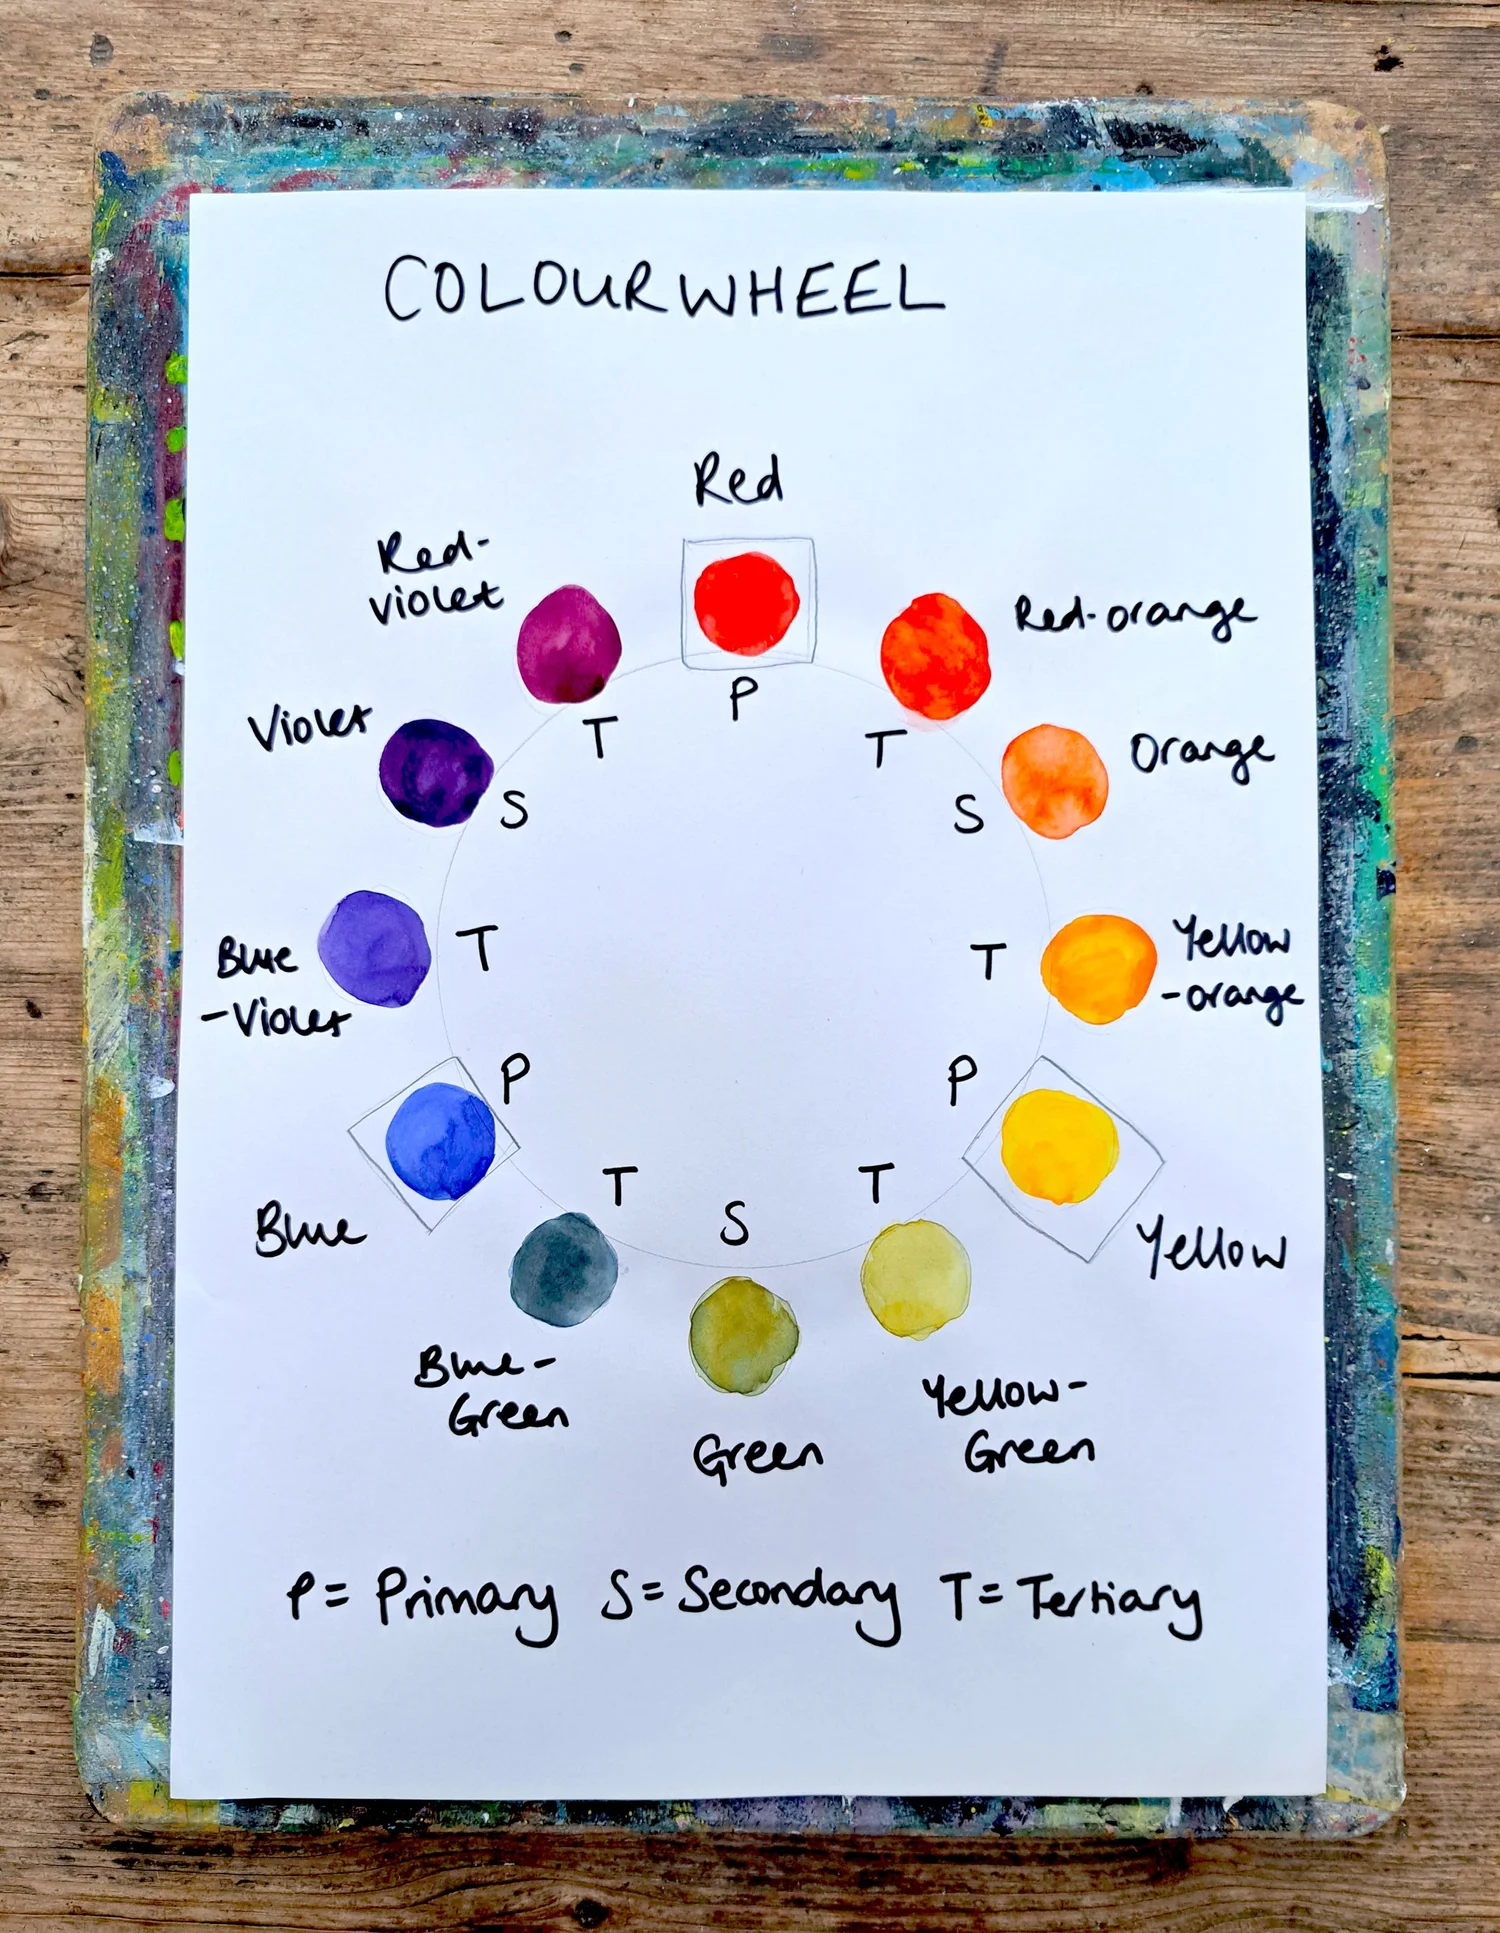 COLOURWHEEL
Red
Red-
violet
Red-orange
P
T
T
Violet
Orange
S
S
Blue
-Violet
T
T
Yellow
-orange
P
P
Blue
T
S
T
Yellow
Blue-
Green
Green
Yellow-
Green
P= Primary S= Secondary T= Tertiary